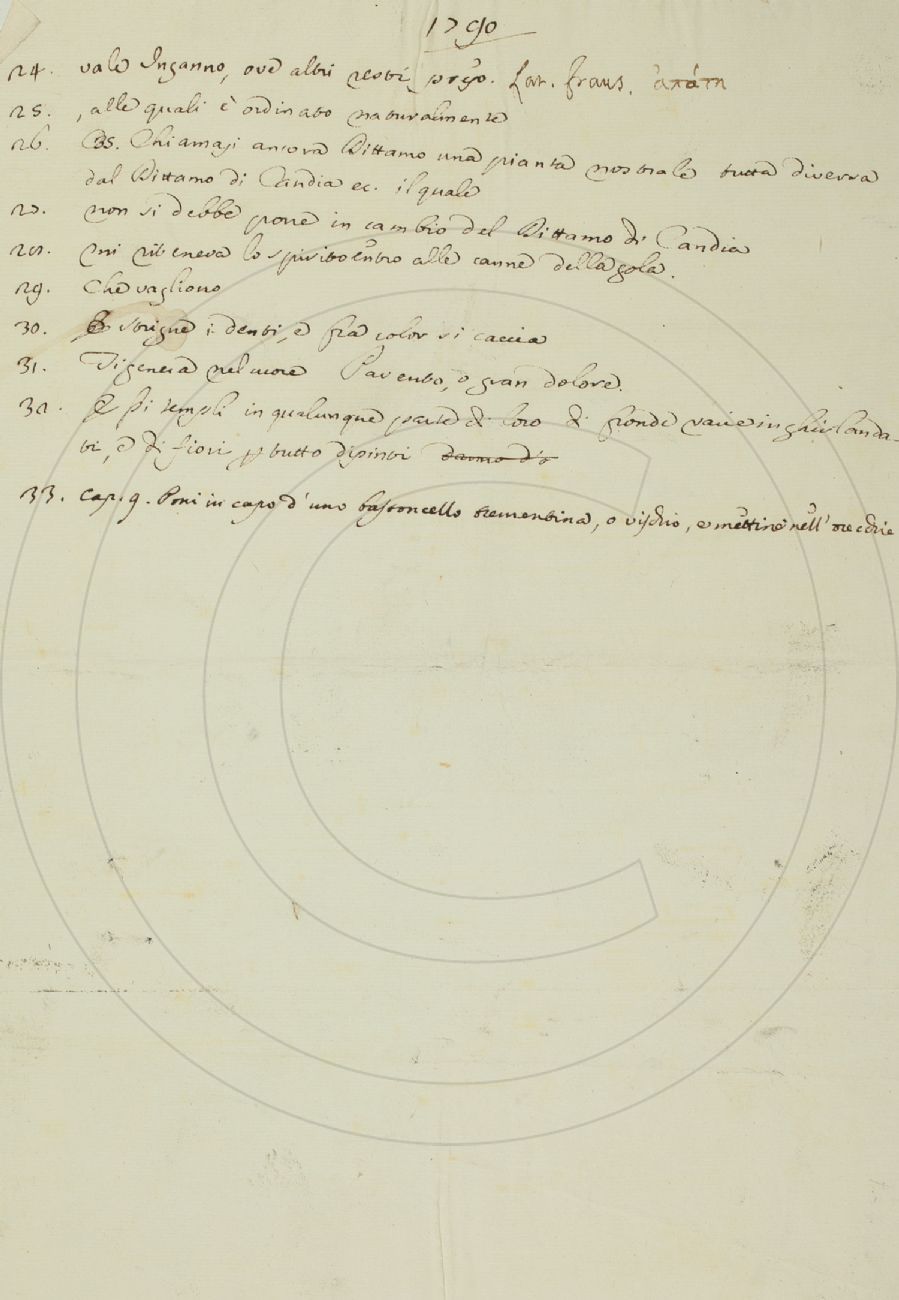 1790
24. vale Inganno, ove altri resti preso. Lat. fraus. ἀπάτη
25. , alle quali è ordinato naturalmente
26. Chiamasi ancora Dittamo una pianta nostrale tutta diversa
dal Dittamo di Candia ec. il quale
27. non si debbe porre in cambio del Dittamo di Candia
28. mi riteneva lo spirito entro alle canne della gola.
29. Che vagliono
30. E strigne i denti, e fra color si caccia
31. Di genera nel cuore Pavento, o gran dolore.
32. E Di templi in qualunque parte di loro di fronde varie inghirlanda-
ti, e di fiori p tutto dipinti
33. cap. 9. Poni in capo d'uno bastoncello trementina, o vischio, e mettine nell' orecchie